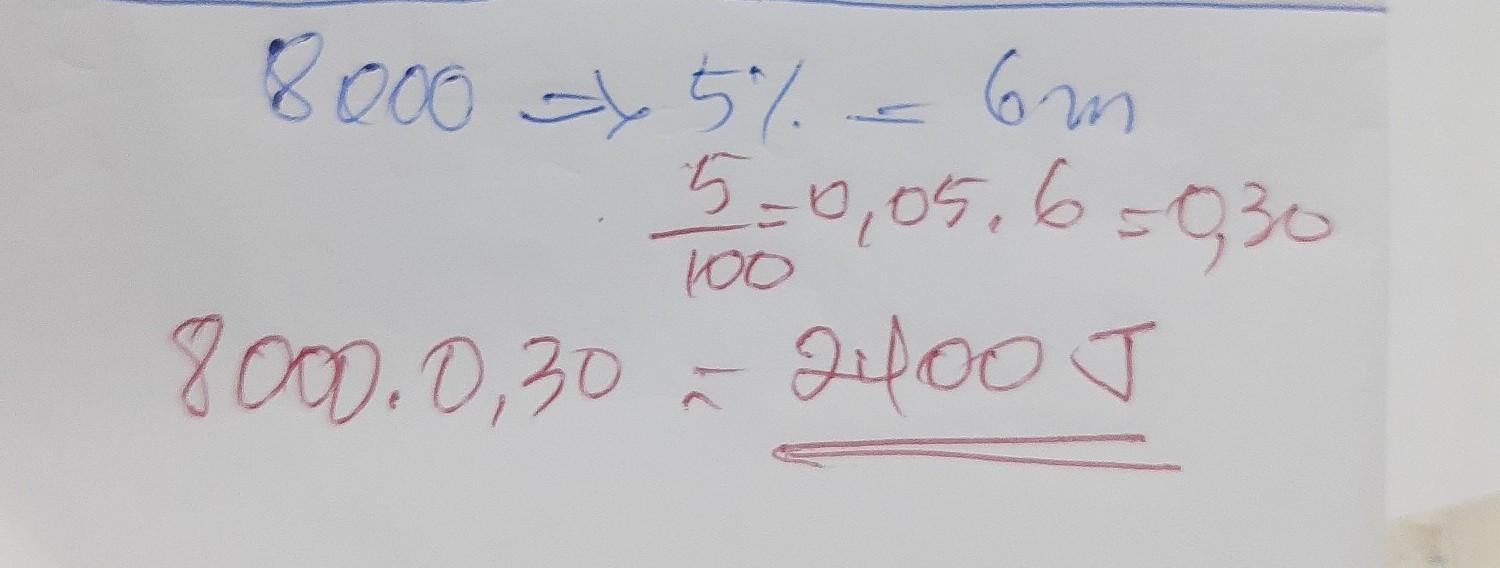 8000 => 5% = 6m
5/100 = 0,05 . 6 = 0,30
8000 . 0,30 = 2400 J